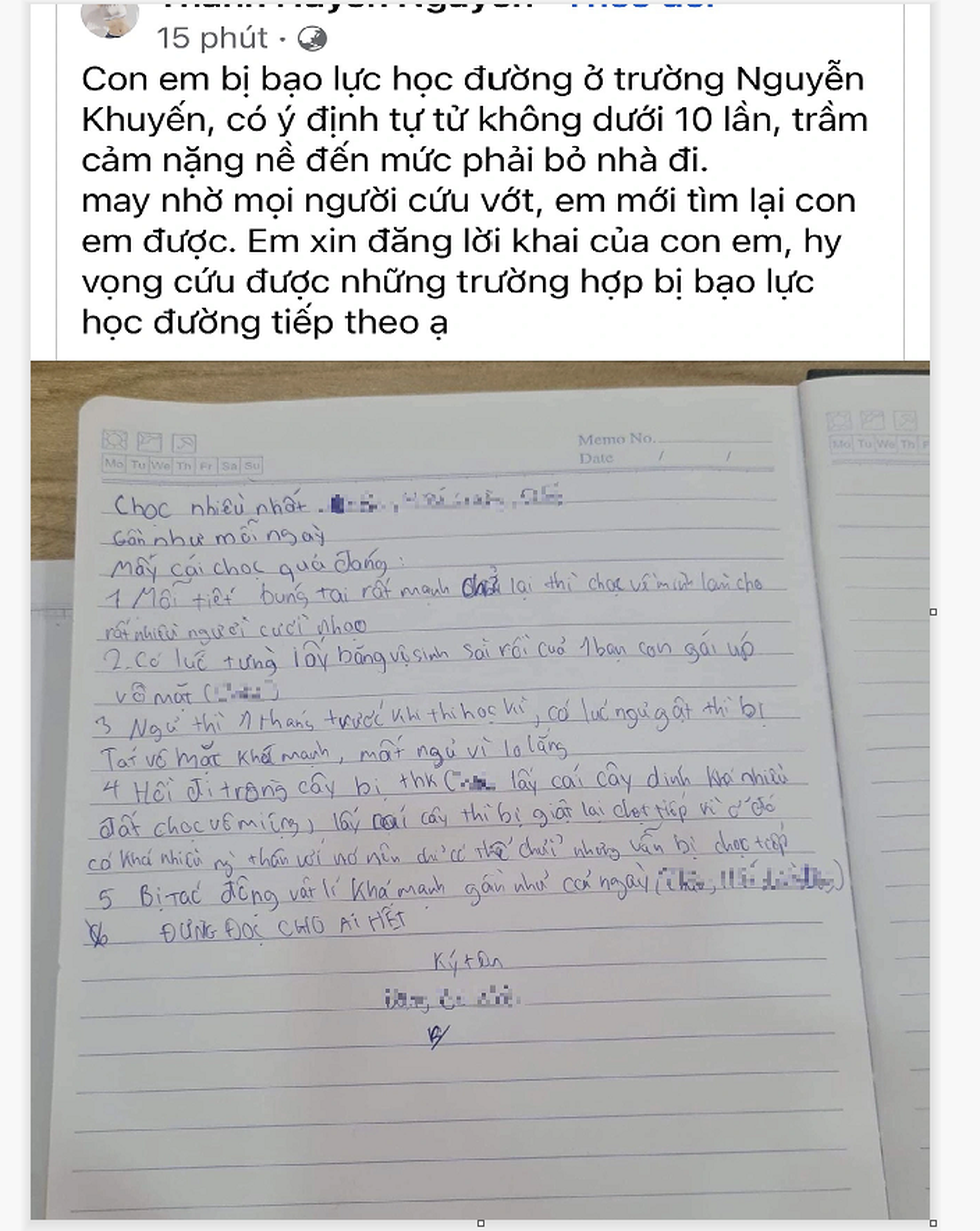 15 phút ·
Con em bị bạo lực học đường ở trường Nguyễn
Khuyến, có ý định tự tử không dưới 10 lần, trầm
cảm nặng nề đến mức phải bỏ nhà đi.
may nhờ mọi người cứu vớt, em mới tìm lại con
em được. Em xin đăng lời khai của con em, hy
vọng cứu được những trường hợp bị bạo lực
học đường tiếp theo ạ
Memo No.
Mo Tu We Th Fr Sa Su
Date / /
Mo Tu We Th F
Chọc nhiều nhất
Gần như mỗi ngày
Mấy cái chọc quá đáng:
1 Mỗi tiết búng tai rất mạnh lại thì chọc làm cho
rất nhiều người cười nhạo
2. Có lúc từng lấy băng vệ sinh sài rồi của 1 bạn con gái úp
vô mặt (
3 Ngủ thì 1 tháng trước khi thi học kì, có lúc ngủ gật thì bị
Tát vô mặt khá mạnh, mất ngủ vì lo lắng
4 Hồi đi trồng cây bị thk lấy cái cây dính khá nhiều
đất chọc vô miệng, lấy cái cây thì bị giật lại tiếp vì ở đó
có khá nhiều ng thân với nó nên dù có thể chửi nhưng vẫn bị chọc tiếp
5 Bị tác động vật lí khá mạnh gần như cả ngày (
ĐỪNG ĐỌC CHO AI HẾT
Ký tên